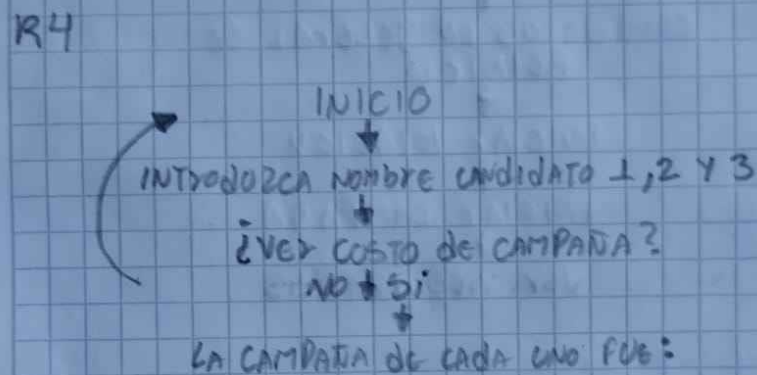 R4
INICIO
INTrodUZCA NOMbrE CANdIdATO 1, 2 Y 3
¿VEr COSTO dE CAMPAÑA?
NO Si
LA CAMPAÑA dE CADA UNO FUE: